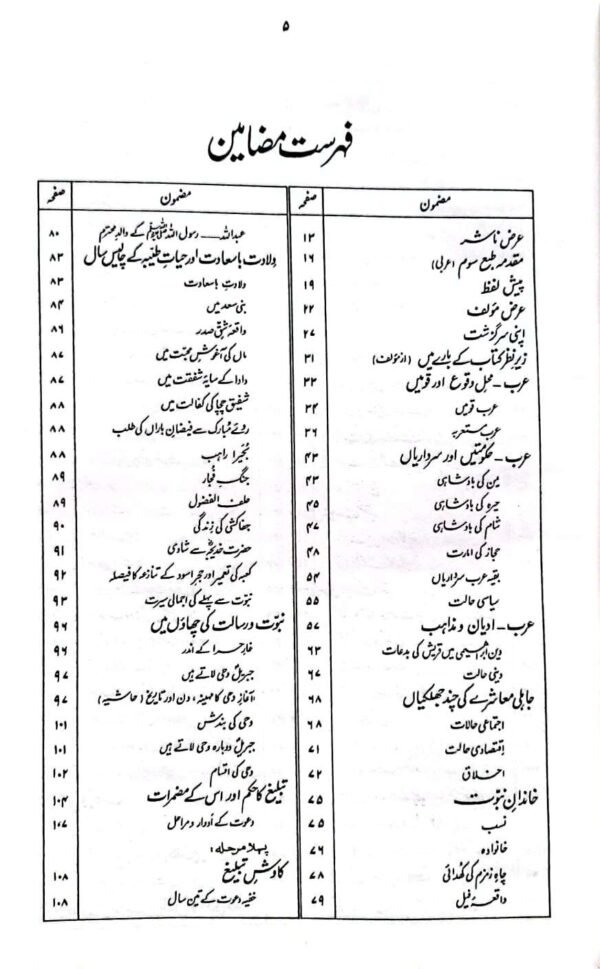 ۵
فہرست مضامین
مضمون صفحہ
عرض ناشر ۱۳
مقدمہ طبع سوم (عربی) ۱۶
پیش لفظ ۱۹
عرض مؤلف ۲۲
اپنی سرگزشت ۲۷
زیرِ نظر کتاب کے بارے میں (از مؤلف) ۳۱
عرب - محل وقوع اور قومیں ۳۳
عرب قومیں ۳۴
عرب مستعربہ ۳۶
عرب - حکومتیں اور سرداریاں ۴۳
یمن کی بادشاہی ۴۳
حیرہ کی بادشاہی ۴۵
شام کی بادشاہی ۴۷
حجاز کی امارت ۴۸
بقیہ عرب سرداریاں ۵۴
سیاسی حالت ۵۵
عرب - ادیان و مذاہب ۵۷
دین ابراہیمی میں قریش کی بدعات ۶۳
دینی حالت ۶۷
جاہلی معاشرے کی چند جھلکیاں ۶۸
اجتماعی حالات ۶۸
اقتصادی حالت ۷۱
اخلاق ۷۲
خاندانِ نبوت ۷۵
نسب ۷۵
خانوادہ ۷۶
چاہِ زمزم کی کھدائی ۷۸
واقعۂ فیل ۷۹
مضمون صفحہ
عبداللہ — رسول اللہ ﷺ کے والدِ محترم ۸۰
ولادت باسعادت اور حیاتِ طیبہ کے چالیس سال ۸۳
ولادتِ باسعادت ۸۳
بنی سعد میں ۸۴
واقعۂ شقِ صدر ۸۶
ماں کی آغوشِ محبت میں ۸۷
دادا کے سایۂ شفقت میں ۸۷
شفیق چچا کی کفالت میں ۸۸
روئے مبارک سے فیضانِ باراں کی طلب ۸۸
بُحیرا راہب ۸۸
جنگِ فجار ۸۹
حلف الفضول ۸۹
جفاکشی کی زندگی ۹۰
حضرت خدیجہؓ سے شادی ۹۱
کعبہ کی تعمیر اور حجرِ اسود کے تنازعہ کا فیصلہ ۹۲
نبوت سے پہلے کی اجمالی سیرت ۹۳
نبوت و رسالت کی چھاؤں میں ۹۶
غارِ حرا کے اندر ۹۶
جبریلؑ وحی لاتے ہیں ۹۷
آغازِ وحی کا مہینہ، دن اور تاریخ (حاشیہ) ۹۷
وحی کی بندش ۱۰۱
جبریلؑ دوبارہ وحی لاتے ہیں ۱۰۱
وحی کی اقسام ۱۰۲
تبلیغ کا حکم اور اس کے مضمرات ۱۰۴
دعوت کے ادوار و مراحل ۱۰۷
پہلا مرحلہ:
کاوشِ تبلیغ ۱۰۸
خفیہ دعوت کے تین سال ۱۰۸